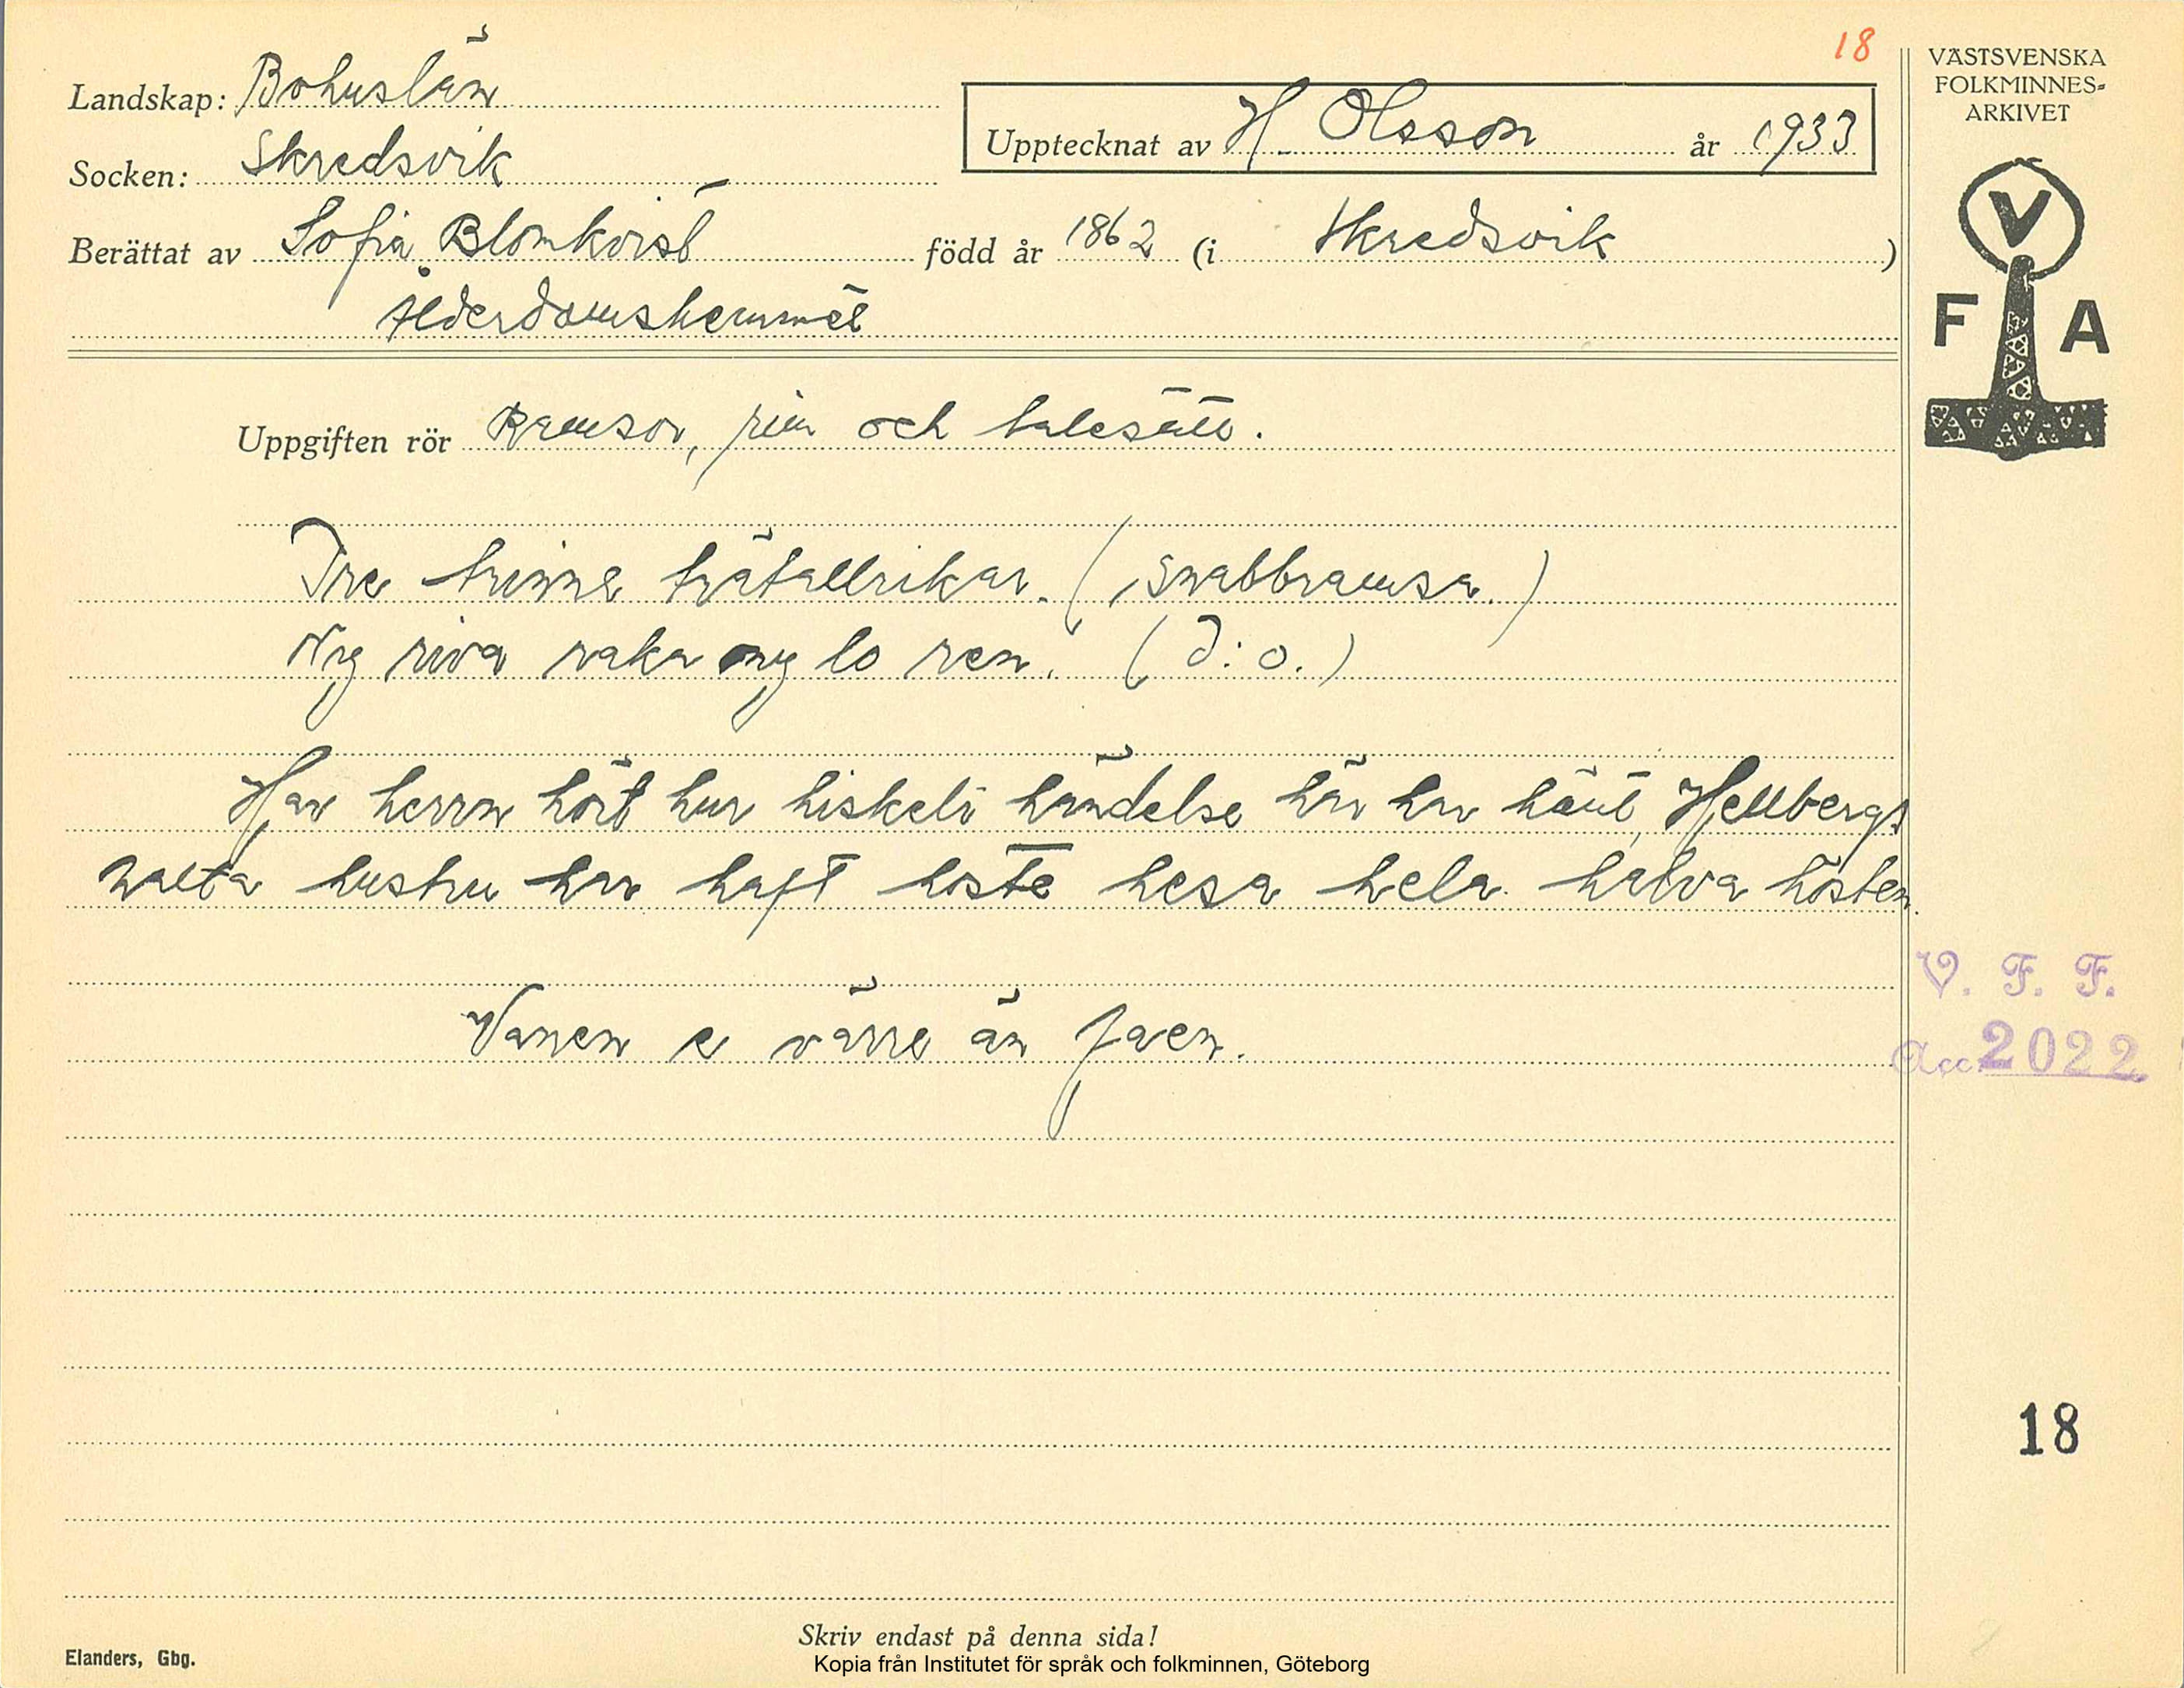 18
VÄSTSVENSKA
FOLKMINNES-
ARKIVET
Landskap: Bohuslän
Upptecknat av H. Olsson år 1933
Socken: Skredsvik
Berättat av Sofia Blomkvist född år 1862 (i Skredsvik)
Ålderdomshemmet
V
F A
Uppgiften rör Ramsor, rim och talesätt.
Tre trinna trätallrikar. (Snabbramsa.)
Ny riva raka ny lo ren. (d:o.)
Har herrn hört hur hiskeli händelse här har hänt, Hellbergs
halta hustru har haft hosta hesa hela halva hösten.
Vanen e värre än faen.
V. F. F.
Acc. 2022
18
Skriv endast på denna sida!
Elanders, Gbg.
Kopia från Institutet för språk och folkminnen, Göteborg